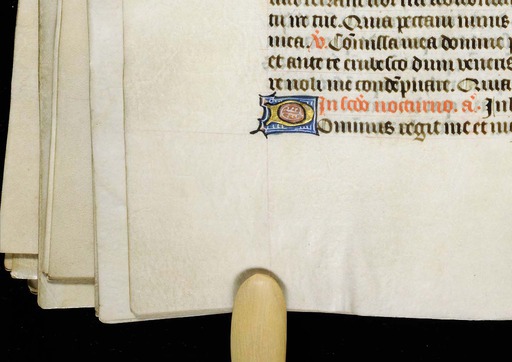 tu ire tue. Quia peccaui nimis
mea. V. Cōmissa mea domine p
et ante te erubesco dum veneris
re noli me condēpnare. Quia
In scdo nocturno. a. In l
Dominus regit me et ni